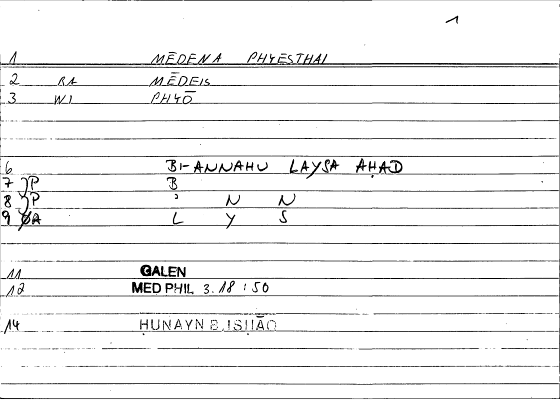 1
1 MĒDENA PHYESTHAI
2 RA MĒDEIS
3 WI PHYŌ
6 BI-ANNAHU LAYSA AḤAD
7 P B
8 P ʾ N N
9 L Y S
11 GALEN
12 MED PHIL 3.18 : 50
14 ḤUNAYN B.ISḤĀQ